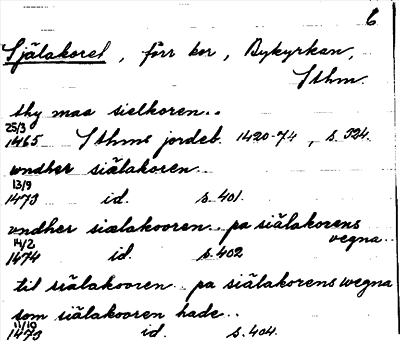 6
Själakoret, förr kor, Bykyrkan,
Sthm.
thy maa sielkoren..
25/3
1465 Sthms jordeb. 1420-74, s. 324.
wndher siälakoren..
13/9
1473 id. s. 401.
vndher siælakooren.. pa siälakorens
vegna..
14/2
1474 id. s. 402
til siälakooren.. pa siälakorens wegna
som siälakooren hade..
11/10
1473 id. s. 404.